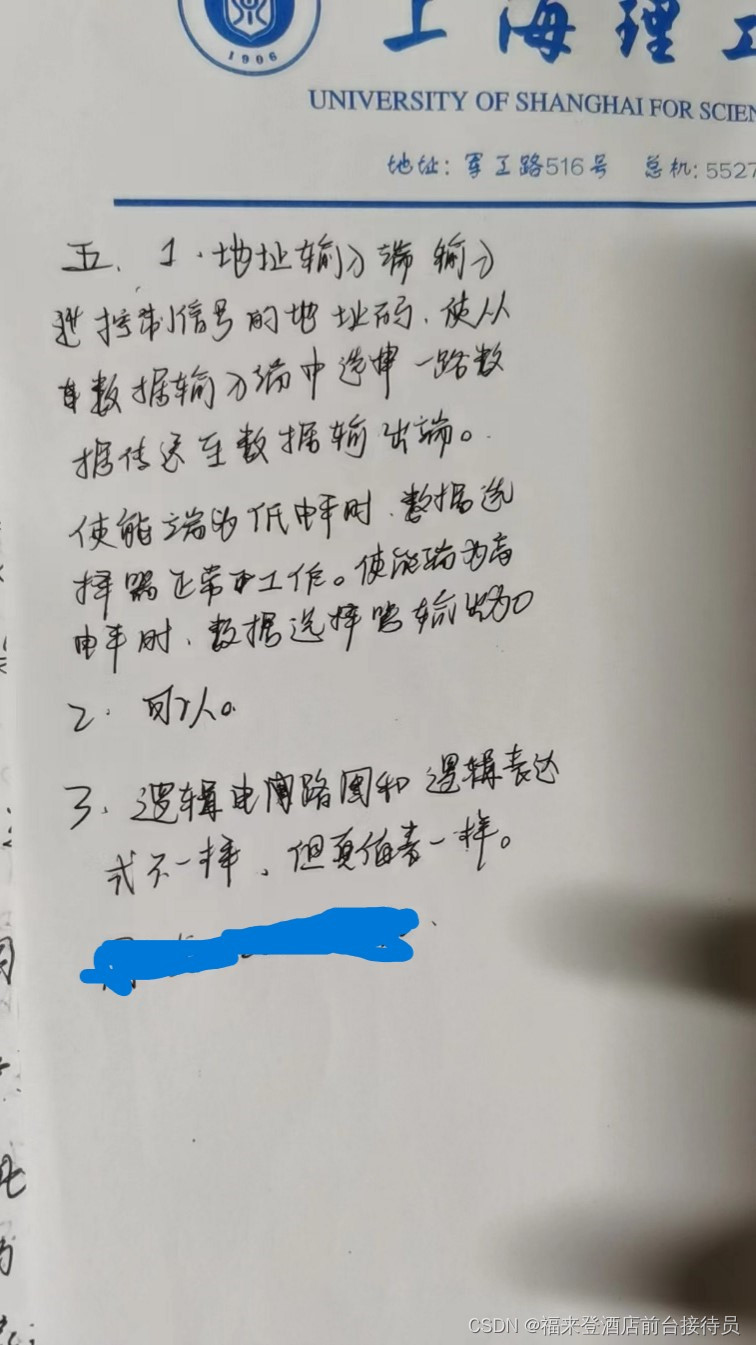 1906
上海理工
UNIVERSITY OF SHANGHAI FOR SCIEN
地址:军工路516号 总机:5527
五、1.地址输入端输入
选控制信号的地址码,使从
数据输入端中选择一路数
据传送至数据输出端。
使能端为低电平时,数据选
择器正常工作。使能端为高
电平时,数据选择器输出为0
2.可以。
3.逻辑电路图和逻辑表达
式不一样,但真值表一样。
CSDN @福来登酒店前台接待员